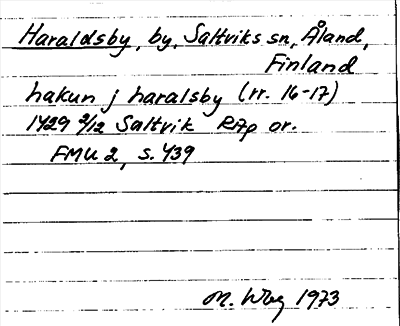 Haraldsby, by, Saltviks sn, Åland,
Finland
hakun j haralsby (rr. 16-17)
1429 2/12 Saltvik RAp or.
FMU 2, s. 439
M. Wbg 1973